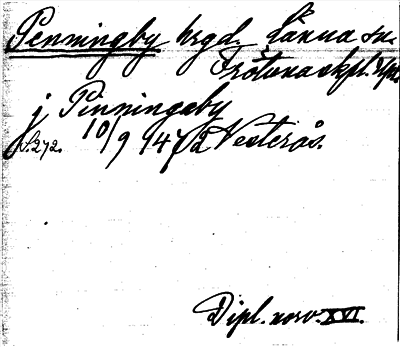 Penningby hrgd. Länna sn.
Frötuna skpl.
j Pinningaby
s. 272. 10/9 1472 Vesterås.
Dipl. norv. XVI.